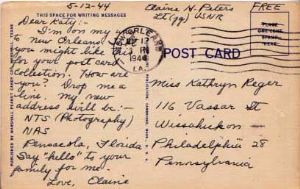 5-12-44
Elaine H. Peters
Lt (jg) USNR
FREE
THIS SPACE FOR WRITING MESSAGES
Dear Katy:
I'm on my way
to New Orleans.
you might like
for your post card
collection. How are
you? Drop me a
line. My new
address will be:-
NTS (Photography)
NAS
Pensacola, Florida
Say "hello" to your
family for me.
Love, Elaine
NEW ORLEANS
1944
LA.
POST CARD
Miss Kathryn Reger
116 Vassar St
Wissahickon
Philadelphia 28
Pennsylvania